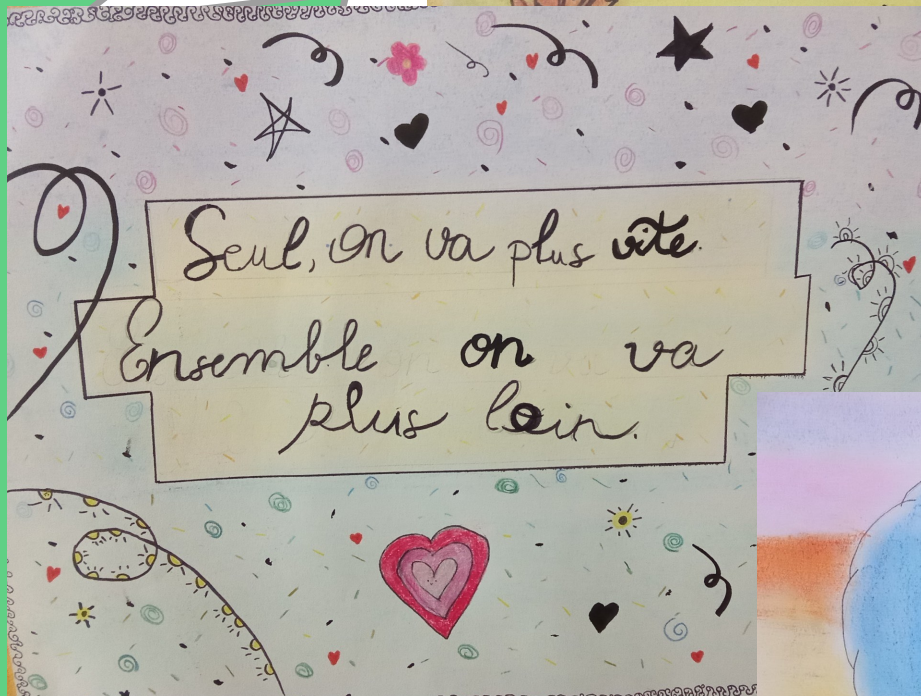 Seul, on va plus vite.
Ensemble on va
plus loin.